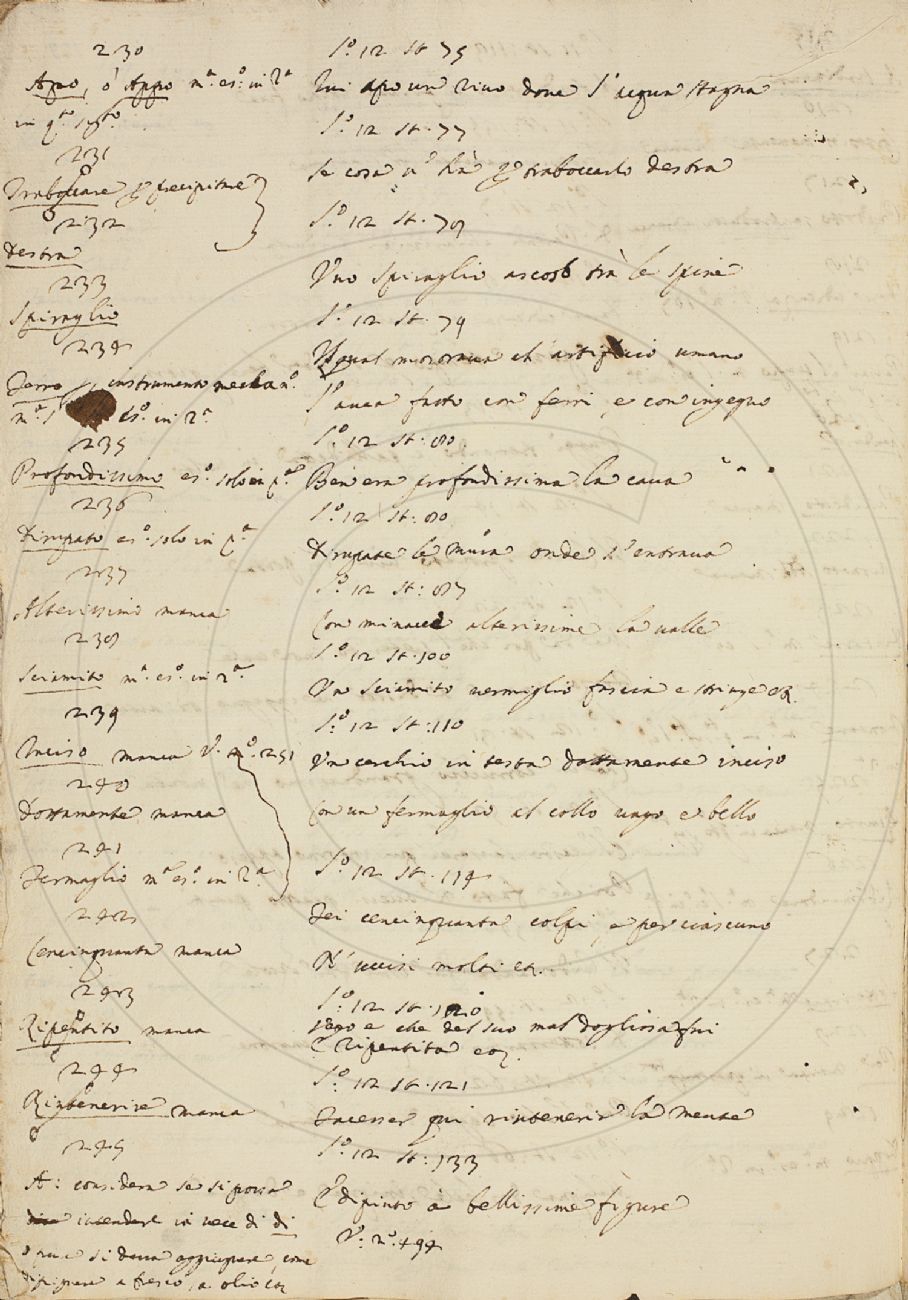 230
Apo, ò Appo m.ª es.º in 2.ª
in q.to sig.to
231
Traboccare p precipitare
232
Destra
233
Spiraglio
234
Ferro instrumento mecha.º
m.ª es.º in 2.ª
235
Profondissimo es.º solo in
236
Dirupato es.º solo in
237
Alterissimo manca
238
Sciamito m.ª es.º in 2.ª
239
Inciso manca V. n.º 251
240
Dottamente manca
241
Fermaglio m.ª es.º in 2.ª
242
Cencinquanta manca
243
Ripentito manca
244
Rintenerire manca
245
A: considera se si possa
intendere in vece di di
o pure si deva aggiugnere, come
dipignere a fresco, a olio ec.
C.º 12 St. 75
Qui apo un rivo dove l'acqua stagna
C.º 12 St. 77
Se cosa n.º hà p traboccarlo destra
C.º 12 St. 79
Uno spiraglio ascoso trà le spine
C.º 12 St. 79
Il qual mostrava ch'artificio umano
L'avea fatto con ferri, e con ingegno
C.º 12 St. 80
Ben era profondissima la cava
C.º 12 St. 80
Dirupate le mura onde s'entrava
C.º 12 St: 87
Con minacce alterissime la valle
C.º 12 St. 100
Uno sciamito vermiglio fascia e stringe ec.
C.º 12 St: 110
Un cerchio in testa dottamente inciso
Con un fermaglio al collo vago e bello
C.º 12 St. 114
Dei cencinquanta colpi, e per ciascuno
N'uccisi molti ec.
C.º 12 St. 120
vero e che del suo mal dogliosa fui
E ripentita ec.
C.º 12 St. 121
Facesser qui rintenerir la mente
C.º 12 St: 133
E dipinto à bellissime figure
V. n.º 494